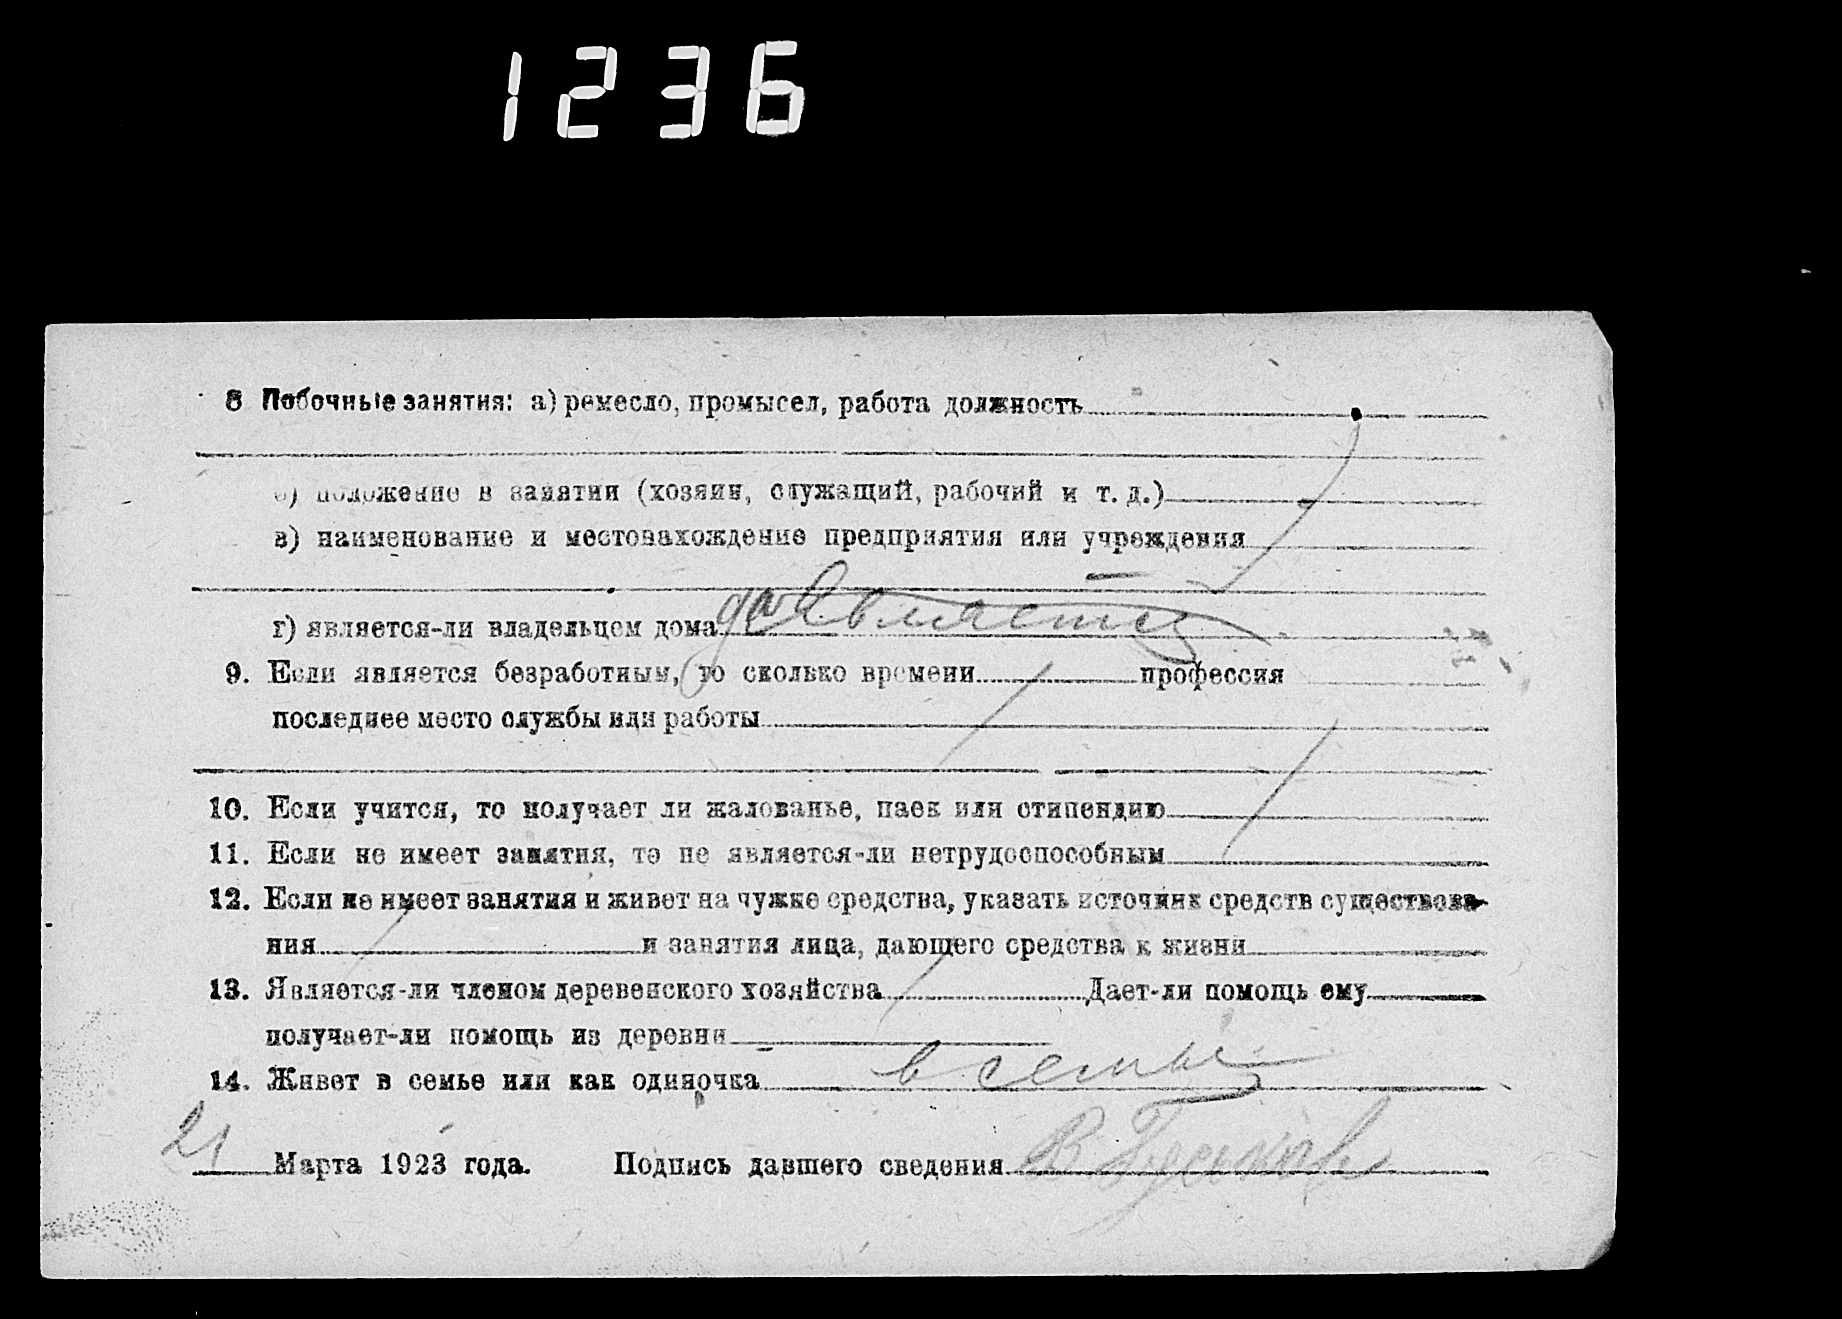 1236
8 Побочные занятия: а) ремесло, промысел, работа должность
б) положение в занятии (хозяин, служащий, рабочий и т. д.)
в) наименование и местонахождение предприятия или учреждения
г) является-ли владельцем дома да Является
9. Если является безработным, то сколько времени профессия
последнее место службы или работы
10. Если учится, то получает ли жалованье, паек или стипендию
11. Если не имеет занятия, то не является-ли нетрудоспособным
12. Если не имеет занятия и живет на чужие средства, указать источник средств существова-
ния и занятия лица, дающего средства к жизни
13. Является-ли членом деревенского хозяйства Дает-ли помощь ему
получает-ли помощь из деревни
14. Живет в семье или как одиночка в семьи
21 Марта 1923 года. Подпись давшего сведения В